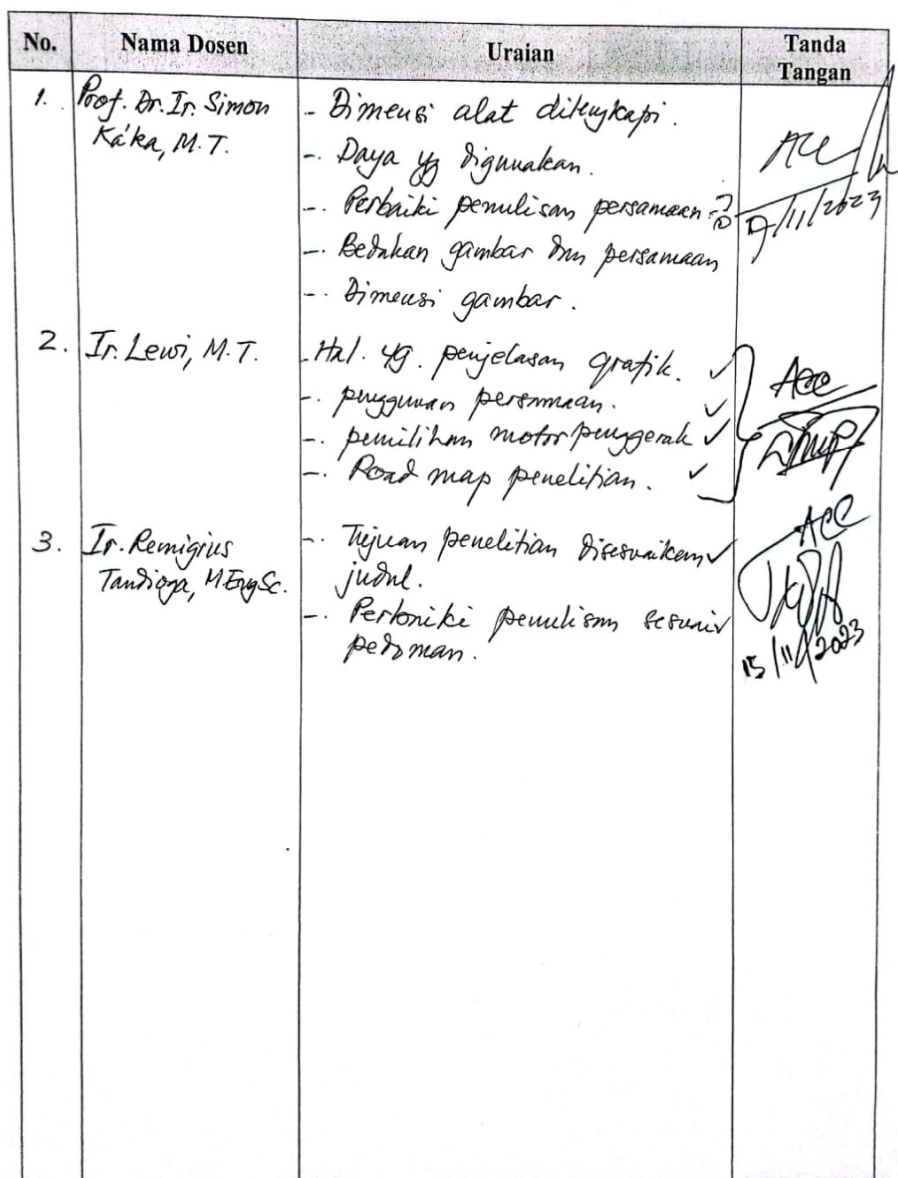 No. Nama Dosen Uraian Tanda Tangan
1. Prof. Dr. Ir. Simon Ka'ka, M.T.
- Dimensi alat dilengkapi.
-. Daya yg digunakan.
-. Perbaiki penulisan persamaan
-. Bedakan gambar dan persamaan
-. Dimensi gambar.
Acc
/11/2023
2. Ir. Lewi, M.T.
- Hal. 49. penjelasan grafik. ✓
-. penggunaan persamaan. ✓
-. pemilihan motor penggerak ✓
-. Road map penelitian. ✓
Acc
3. Ir. Remigius Tandioga, M.EngSc.
-. Tujuan penelitian disesuaikan ✓
judul.
-. Perbaiki penulisan sesuai ✓
pedoman.
Acc
15/11/2023